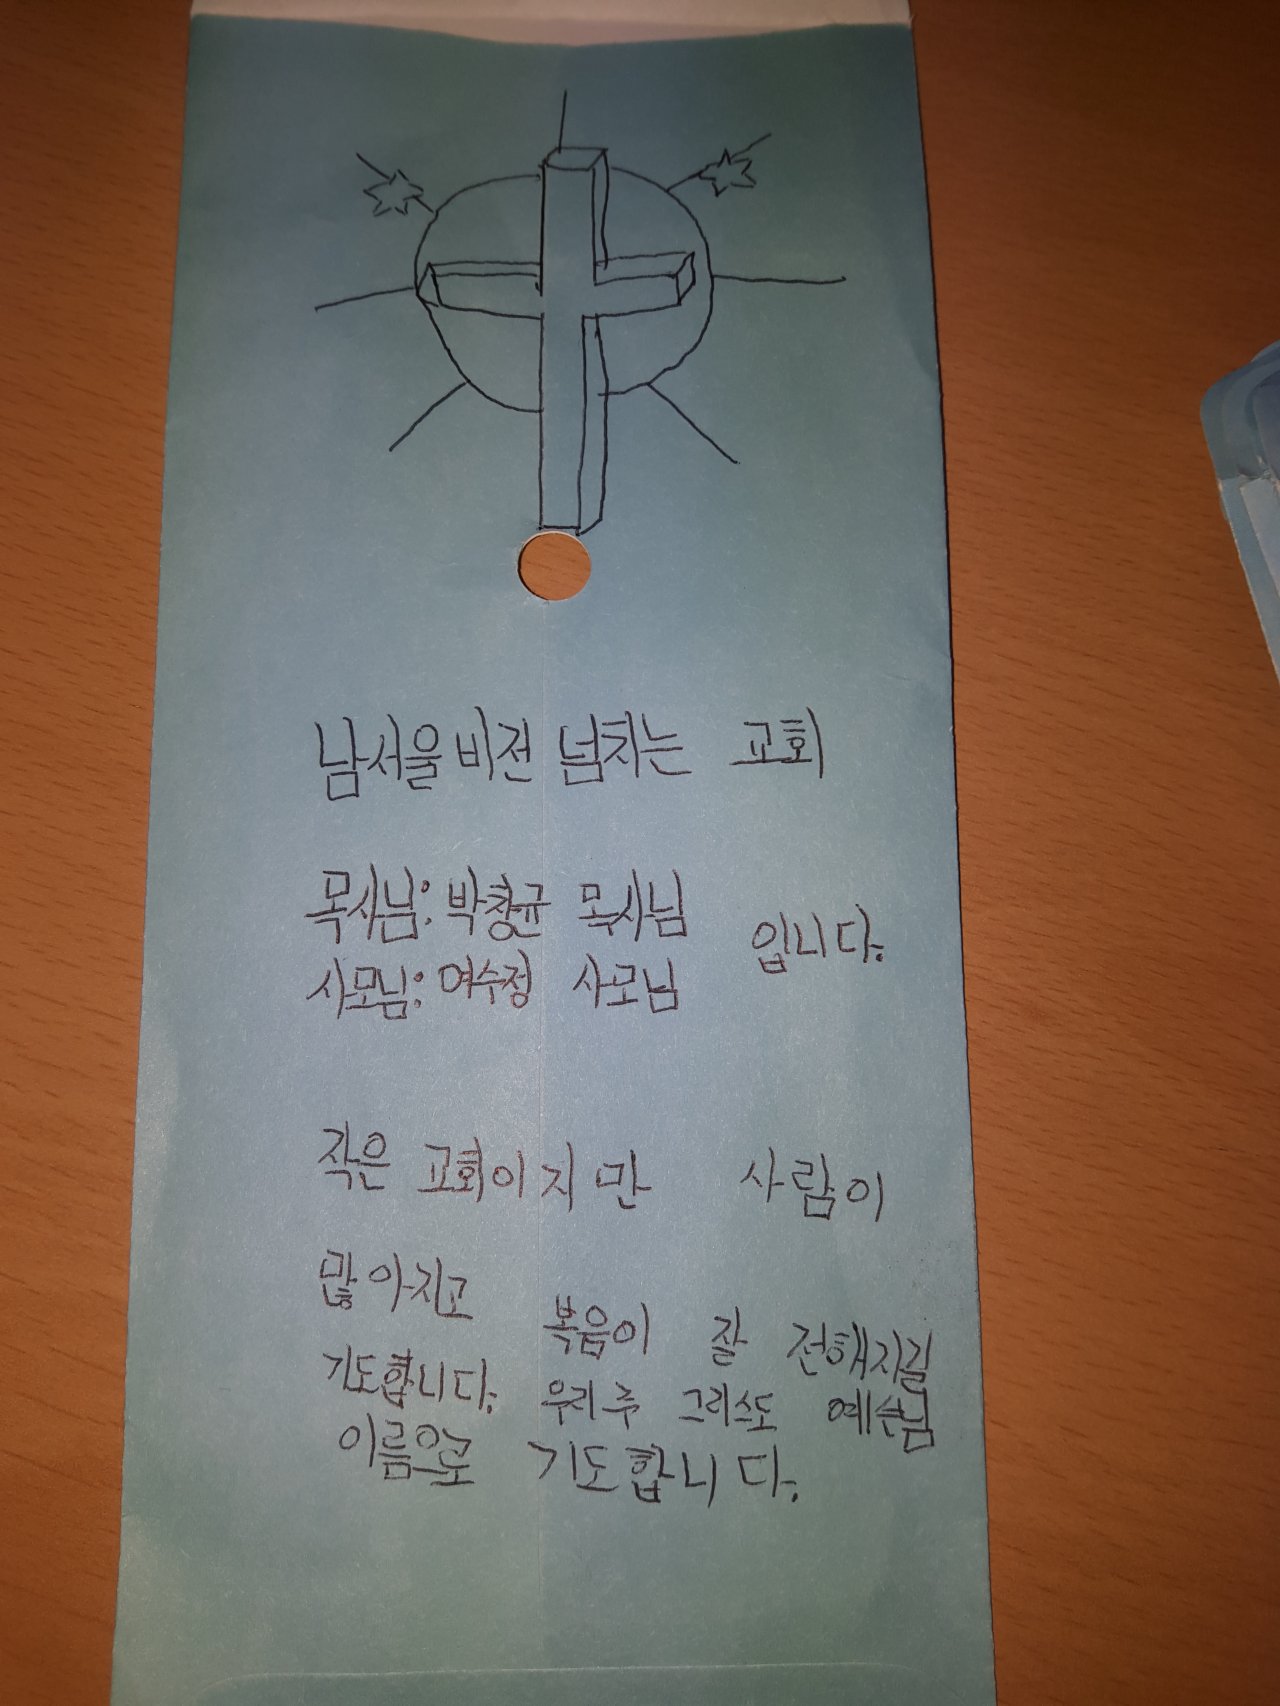 남서울비전 넘치는 교회
목사님: 박창균 목사님
사모님: 여수정 사모님
입니다.
작은 교회이지만 사람이
많아지고 복음이 잘 전해지길
기도합니다. 우리 주 그리스도 예수님
이름으로 기도합니다.